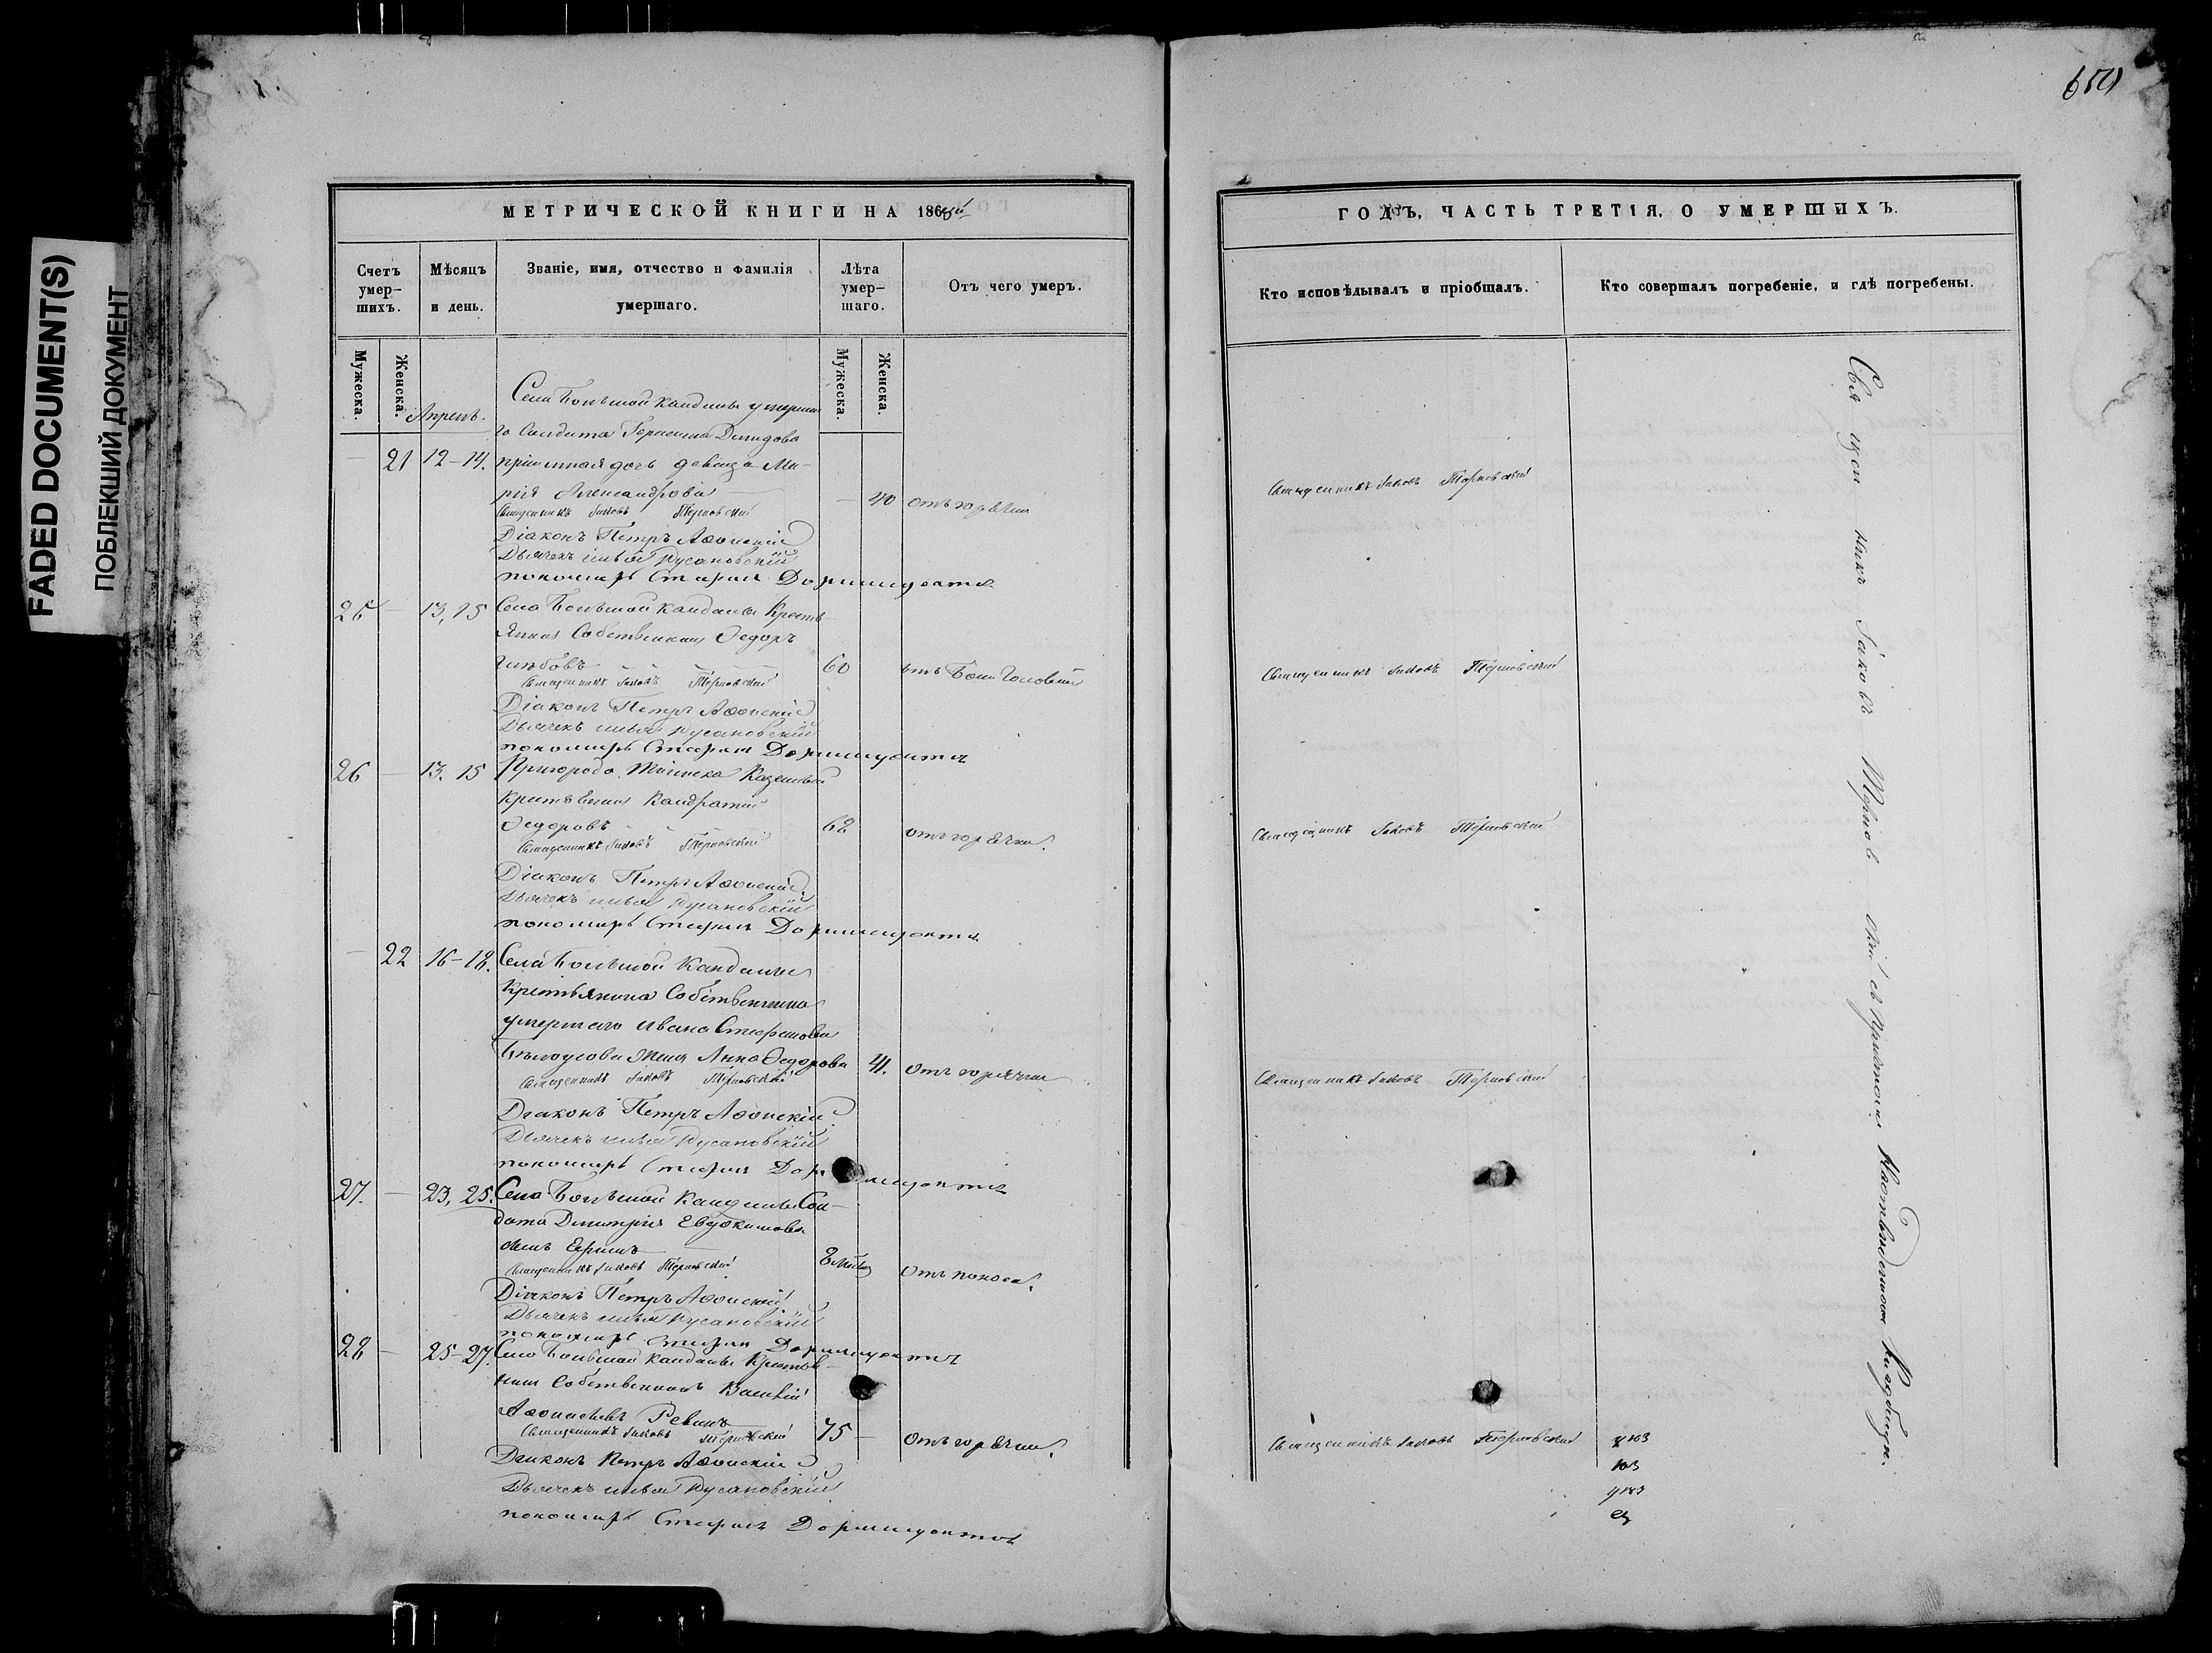 FADED DOCUMENT(S)
ПОБЛЕКШИЙ ДОКУМЕНТ
МЕТРИЧЕСКОЙ КНИГИ НА 186
Счетъ умер-
шихъ.
Мѣсяцъ
и день.
Званіе, имя, отчество и фамилія
умершаго.
Лѣта
умер-
шаго.
Отъ чего умеръ.
Мужеска.
Женска.
Мужеска.
Женска.
Апрель.
Села Большой Кандалы умерша
го Солдата Демидова
21 12-14. пріемная дочь девица Ма-
рія Александрова 40 отъ горячки
Священникъ Іаковъ Терновскій
Діаконъ Петръ Аѳонскій
Дьячекъ Илья Русановскій
пономарь Стефанъ Дормидонтовъ
25 13, 15 Села Большой Кандалы Кресть
янинъ Собственникъ Ѳедоръ
Глѣбовъ 60 отъ боли головной
Священникъ Іаковъ Терновскій
Діаконъ Петръ Аѳонскій
Дьячекъ Илья Русановскій
пономарь Стефанъ Дормидонтовъ
26 13. 15 Пригорода Казенный
Крестьянинъ Кондратій
Ѳедоровъ 68 отъ горячки.
Священникъ Іаковъ Терновскій
Діаконъ Петръ Аѳонскій
Дьячекъ Илья Русановскій
пономарь Стефанъ Дормидонтовъ
22 16-18. Села Большой Кандалы
Крестьянина Собственника
умершаго Ивана Стефанова
Бѣлоусова жена Анна Ѳедорова 41. отъ горячки
Священникъ Іаковъ Терновскій
Діаконъ Петръ Аѳонскій
Дьячекъ Илья Русановскій
пономарь Стефанъ Дормидонтовъ
27. 23, 25. Села Большой Кандалы Сол-
дата Димитрія Евдокимова
сынъ Ефимъ 8 отъ поноса.
Священникъ Іаковъ Терновскій
Діаконъ Петръ Аѳонскій
Дьячекъ Илья Русановскій
пономарь Стефанъ Дормидонтовъ
28 25-27. Села Большой Кандалы Крестья-
нинъ Собственникъ Василій
Аѳонасьевъ Ревинъ 75 отъ горячки.
Священникъ Іаковъ Терновскій
Діаконъ Петръ Аѳонскій
Дьячекъ Илья Русановскій
пономарь Стефанъ Дормидонтовъ
ГОДЪ, ЧАСТЬ ТРЕТІЯ, О УМЕРШИХЪ.
Кто исповѣдывалъ и пріобщалъ.
Кто совершалъ погребеніе, и гдѣ погребены.
Священникъ Іаковъ Терновскій
Священникъ Іаковъ Терновскій
Священникъ Іаковъ Терновскій
Священникъ Іаковъ Терновскій
Священникъ Іаковъ Терновскій
Священникъ Іаковъ Терновскій съ причтомъ на отведенномъ кладбищѣ.